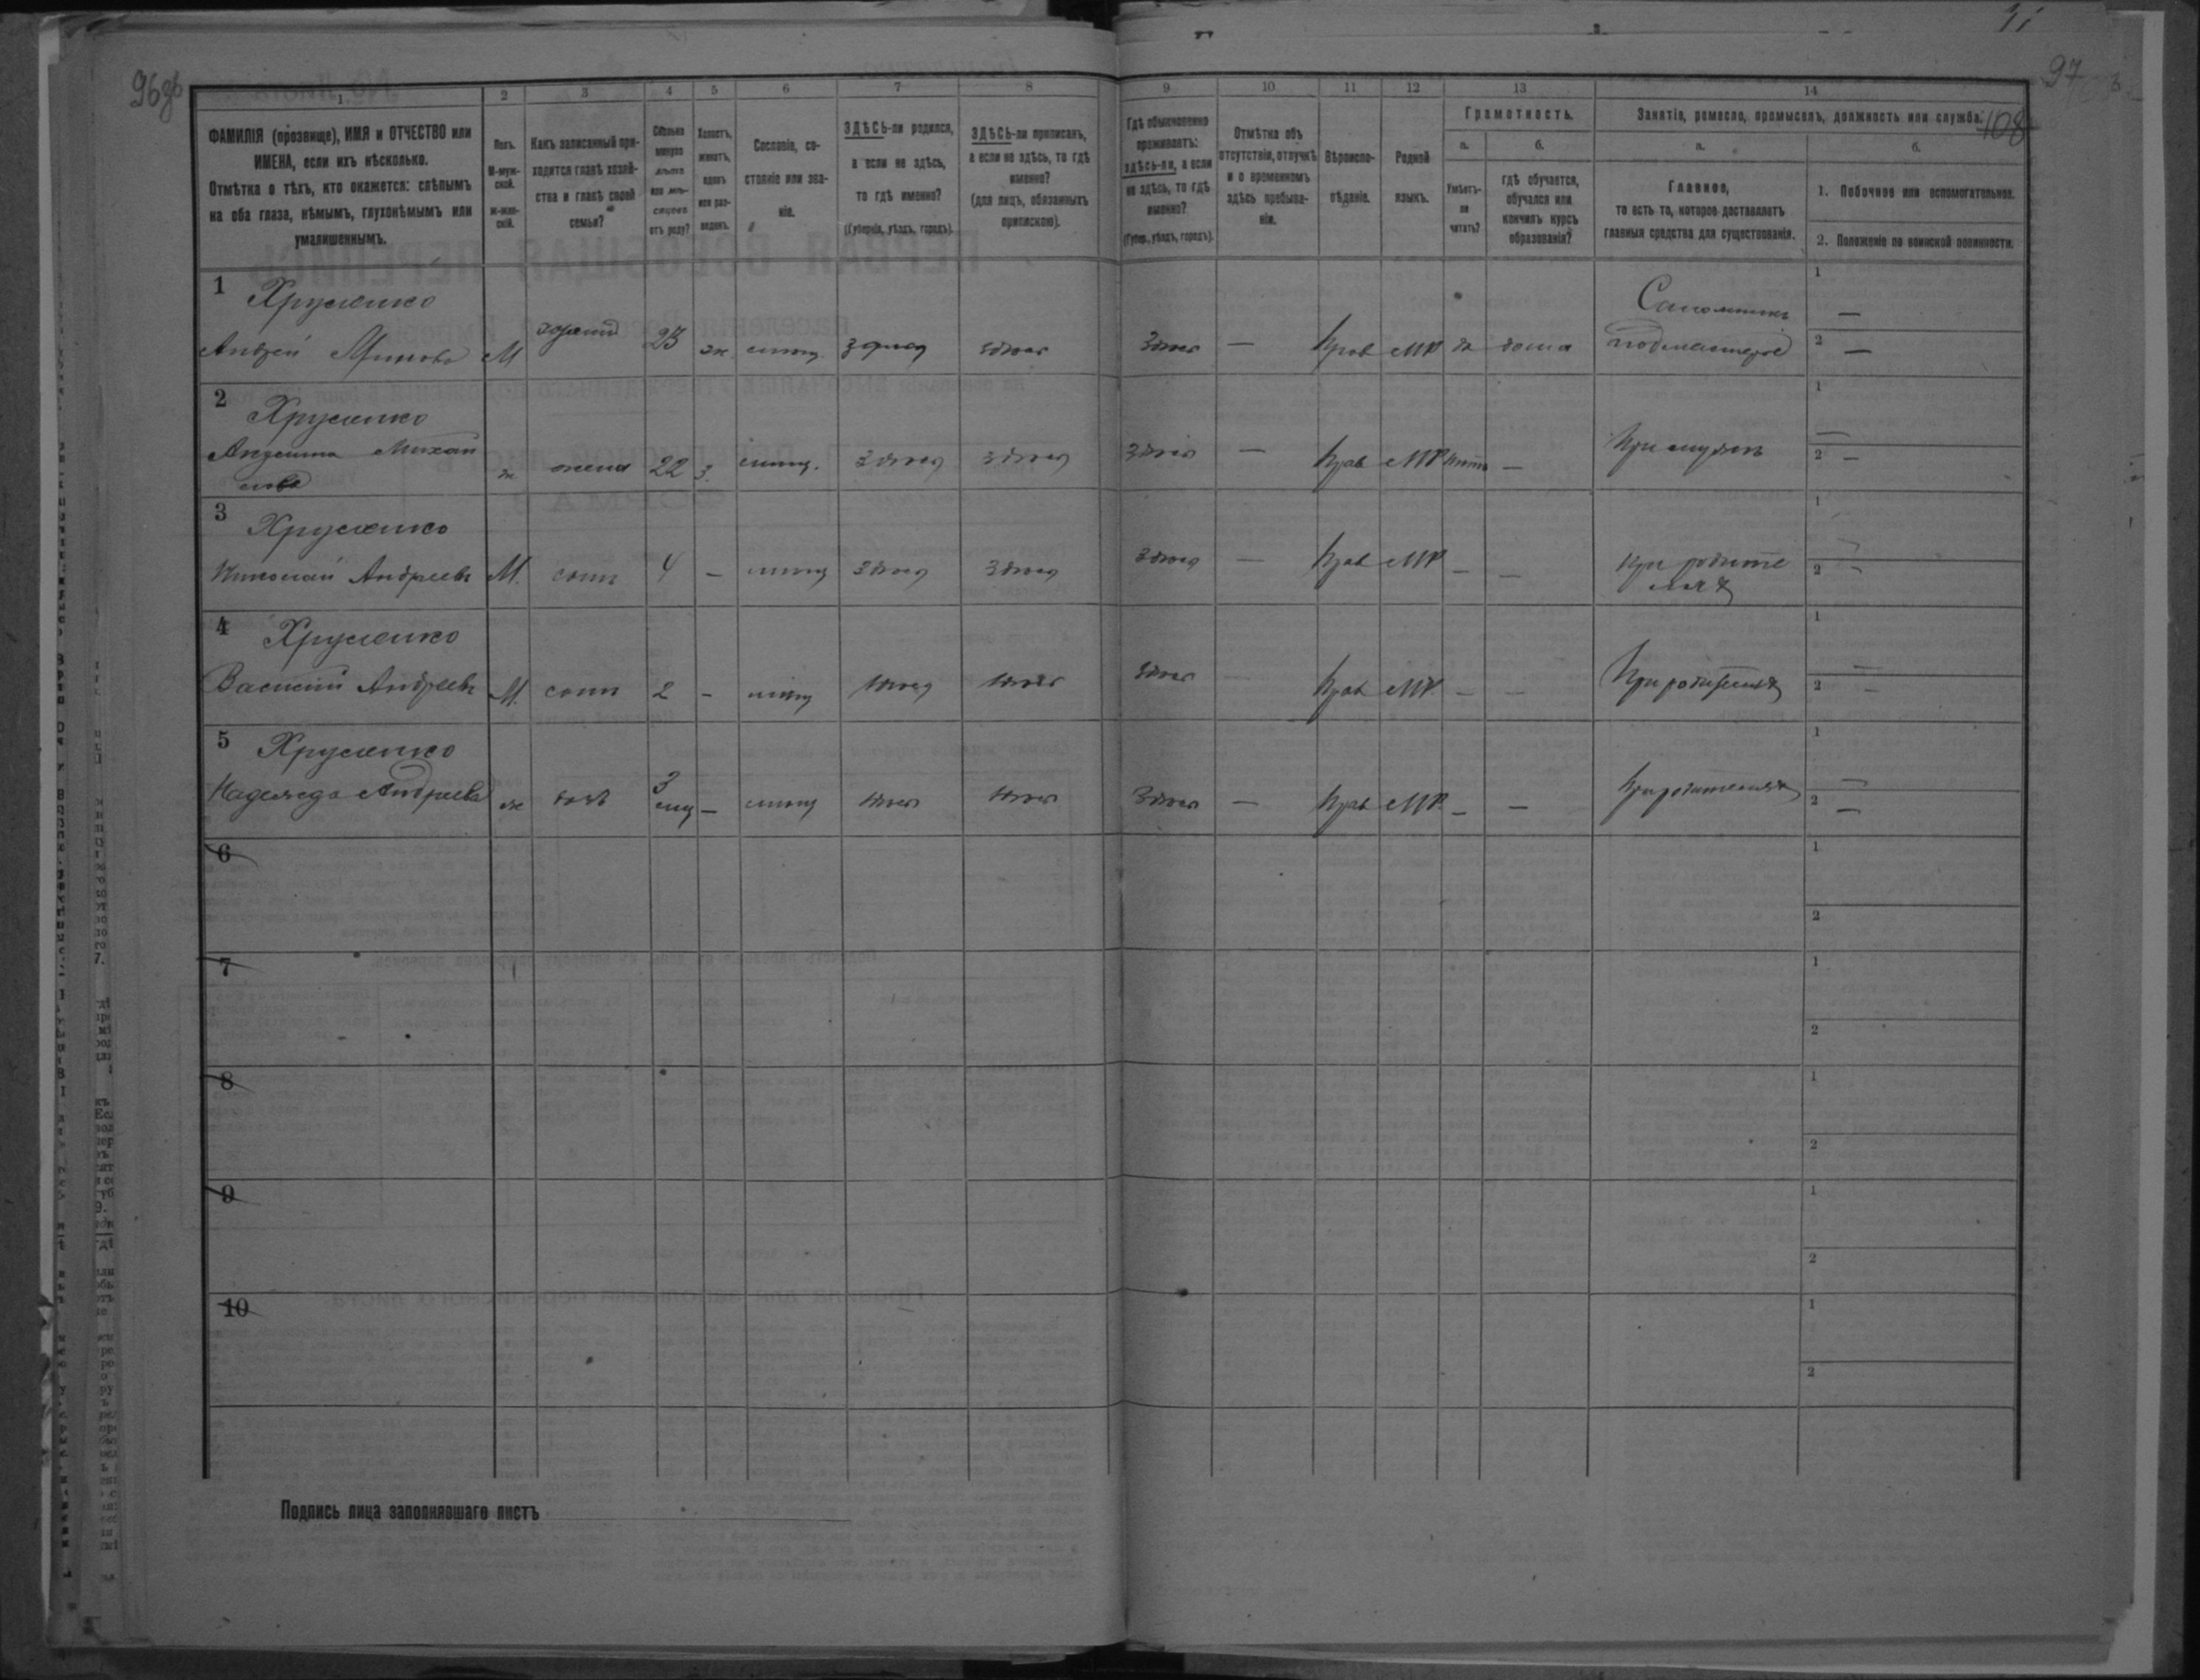 96об
97
108
1 2 3 4 5 6 7 8 9 10 11 12 13 14
ФАМИЛІЯ (прозвище), ИМЯ и ОТЧЕСТВО или
ИМЕНА, если ихъ нѣсколько.
Отмѣтка о тѣхъ, кто окажется: слѣпымъ
на оба глаза, нѣмымъ, глухонѣмымъ или
умалишеннымъ.
Полъ.
М-муж-
ской.
Ж-жен-
скій.
Какъ записанный при-
ходится главѣ хозяй-
ства и главѣ своей
семьи?
Сколько
минуло
лѣтъ
или мѣ-
сяцевъ
отъ роду?
Холостъ,
женатъ,
вдовъ
или раз-
веденъ.
Сословіе, со-
стояніе или зва-
ніе.
ЗДѢСЬ-ли родился,
а если не здѣсь,
то гдѣ именно?
(Губернія, уѣздъ, городъ).
ЗДѢСЬ-ли приписанъ,
а если не здѣсь, то гдѣ
именно?
(для лицъ, обязанныхъ
припискою).
Гдѣ обыкновенно
проживаетъ:
здѣсь-ли, а если
не здѣсь, то гдѣ
именно?
(Губер., уѣздъ, городъ).
Отмѣтка объ
отсутствіи, отлучкѣ
и о временномъ
здѣсь пребыва-
ніи.
Вѣроиспо-
вѣданіе.
Родной
языкъ.
Грамотность.
а.
Умѣетъ-
ли
читать?
б.
гдѣ обучается,
обучался или
кончилъ курсъ
образованія?
Занятіе, ремесло, промыселъ, должность или служба.
а.
Главное,
то есть то, которое доставляетъ
главныя средства для существованія.
б.
1. Побочное или вспомогательное.
2. Положеніе по воинской повинности.
1 Хруленко
Андрей М 23 ж. здѣсь здѣсь — Прав МР да дома
Сапожникъ
подмастерье
1 —
2 —
2 Хруленко
ж жена 22 з. здѣсь здѣсь здѣсь — Прав МР нѣтъ — При мужѣ
1 —
2 —
3 Хруленко
Николай Андреевъ М. сынъ 4 — здѣсь здѣсь здѣсь — Прав МР — — При родите
ляхъ
1 —
2 —
4 Хруленко
Василій Андреевъ М. сынъ 2 — здѣсь здѣсь здѣсь — Прав МР — — При родителяхъ
1 —
2 —
5 Хруленко
Надежда Андреева ж дочь 3 — здѣсь здѣсь здѣсь — Прав МР — — При родителяхъ
1 —
2 —
6
1
2
7
1
2
8
1
2
9
1
2
10
1
2
Подпись лица заполнявшаго листъ